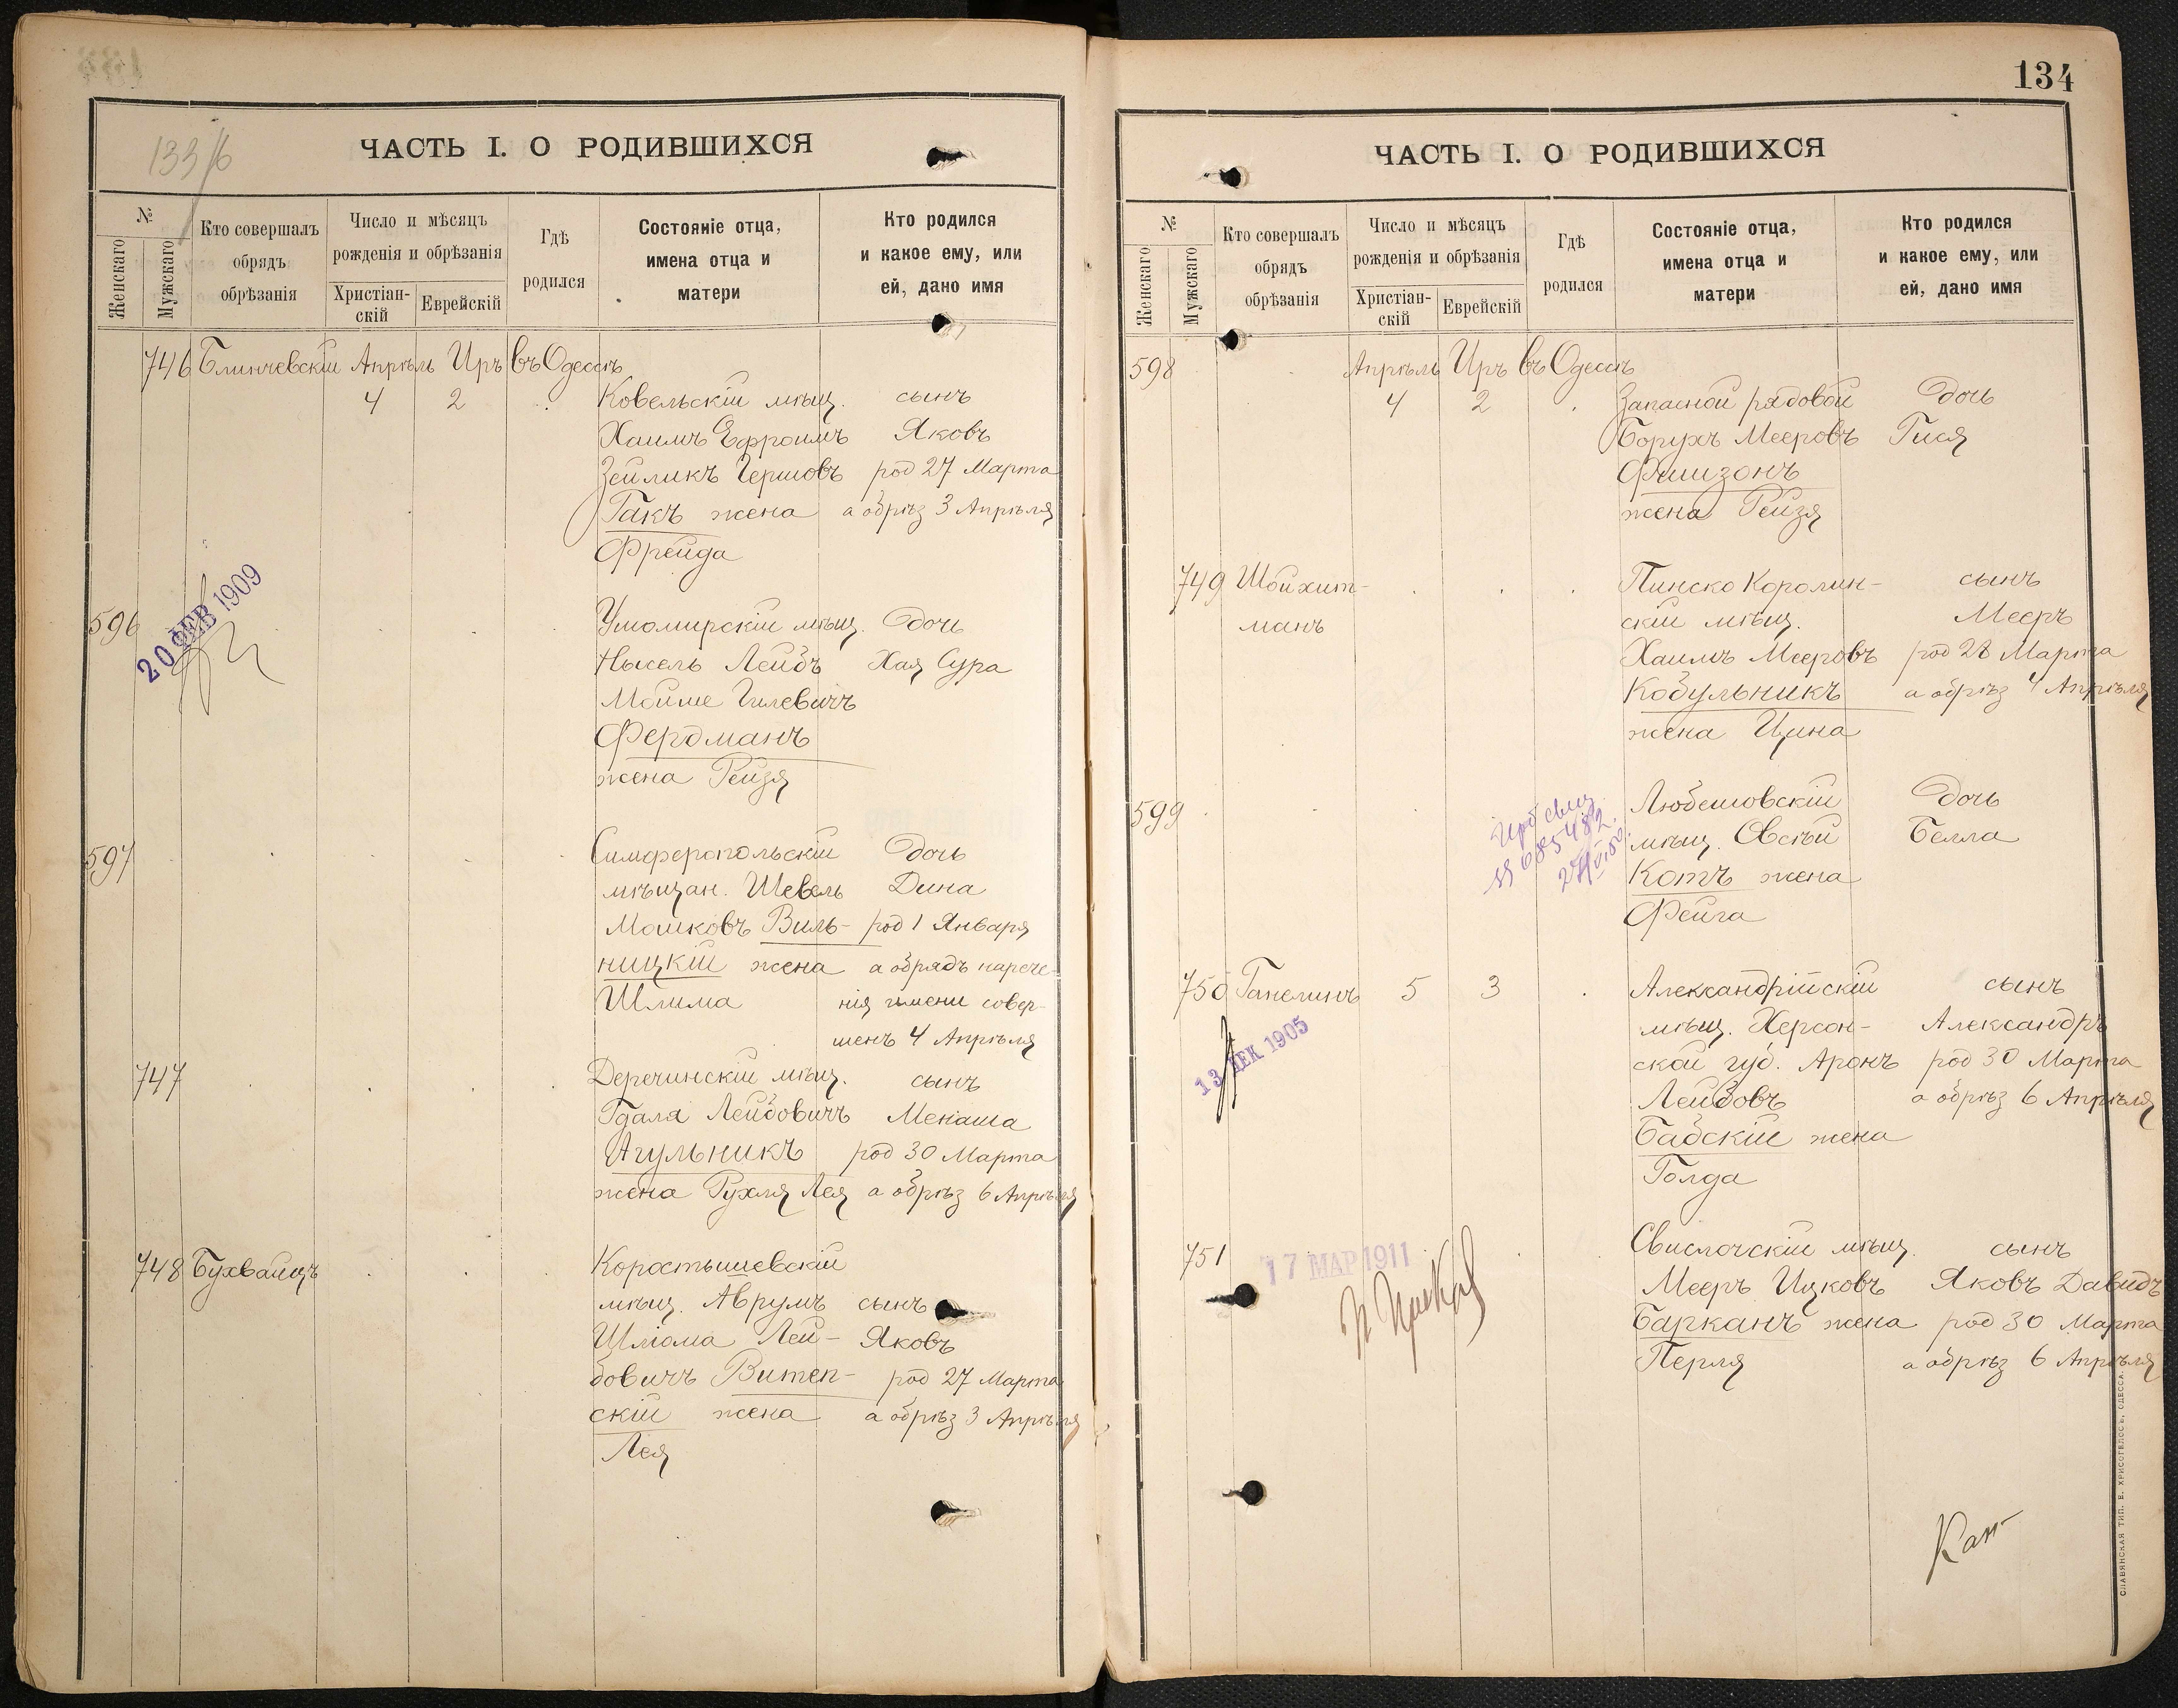 133/б
ЧАСТЬ I. О РОДИВШИХСЯ
№
Женскаго
Мужскаго
Кто совершалъ
обрядъ
обрѣзанія
Число и мѣсяцъ
рожденія и обрѣзанія
Христіан-
скій
Еврейскій
Гдѣ
родился
Состояніе отца,
имена отца и
матери
Кто родился
и какое ему, или
ей, дано имя
746 Блинчевскій Апрѣль Иръ въ Одессѣ
4 2 Ковельскій мѣщ. сынъ
Хаимъ Ефроимъ Яковъ
Зейликъ Гершовъ род 27 Марта
Гакъ жена а обрѣз 3 Апрѣля
Фрейда
20 ФЕВ 1909
596 мѣщ. Дочь
Нысель Лейбъ Хая Сура
Мойше Гилевичъ
Фердманъ
жена Рейзя
597 Симферопольскій Дочь
мѣщан. Шевель Дина
Мошковъ Виль- род 1 Января
ницкій жена а обрядъ нарече-
Шлима нія имени совер-
шенъ 4 Апрѣля
747 Деречинскій мѣщ. сынъ
Гдаля Лейбовичъ Менаша
Агульникъ род 30 Марта
жена Рухля Лея а обрѣз 6 Апрѣля
748 Бухвайцъ Коростышевскій
мѣщ. Аврумъ сынъ
Шліома Лей- Яковъ
бовичъ Витеп- род 27 Марта
скій жена а обрѣз 3 Апрѣля
Лея
134
ЧАСТЬ I. О РОДИВШИХСЯ
№
Женскаго
Мужскаго
Кто совершалъ
обрядъ
обрѣзанія
Число и мѣсяцъ
рожденія и обрѣзанія
Христіан-
скій
Еврейскій
Гдѣ
родился
Состояніе отца,
имена отца и
матери
Кто родился
и какое ему, или
ей, дано имя
598 Апрѣль Иръ въ Одессѣ
4 2 Запасной рядовой Дочь
Борухъ Мееровъ Гися
Фишзонъ
жена Рейзя
749 Шойхит- Пинско Каролин- сынъ
манъ скій мѣщ. Мееръ
Хаимъ Мееровъ род 28 Марта
Кобульникъ а обрѣз 4 Апрѣля
жена Цина
599 Любешовскій Дочь
мѣщ. Овсѣй Белла
Котъ жена
Фейга
750 Гапелинъ 5 3 Александрійскій сынъ
мѣщ. Херсон- Александръ
ской губ. Аронъ род 30 Марта
Лейбовъ а обрѣз 6 Апрѣля
Бабскій жена
Голда
13 ДЕК 1905
751 Свислочскій мѣщ. сынъ
Мееръ Ицковъ Яковъ Давидъ
Барканъ жена род 30 Марта
Перля а обрѣз 6 Апрѣля
17 МАР 1911
СЛАВЯНСКАЯ ТИП. Е. ХРИСОГЕЛОСЪ, ОДЕССА.